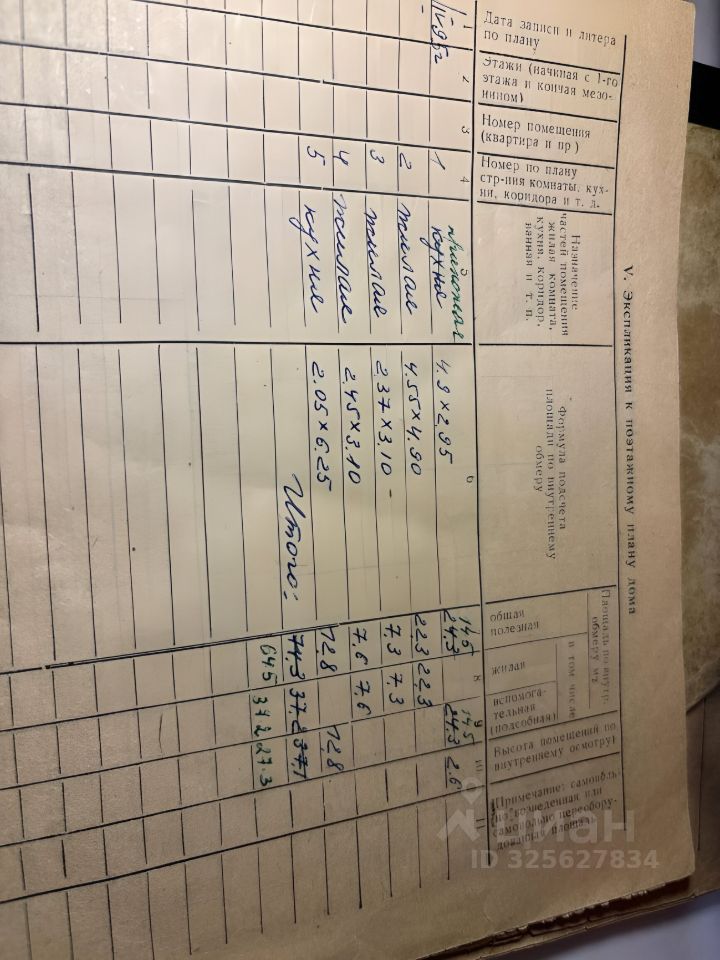 V. Экспликация к поэтажному плану дома
Дата записи и литера
по плану
Этажи (начиная с 1-го
этажа и кончая мезо-
нином)
Номер помещения
(квартира и пр)
Номер по плану
стр-ния комнаты, кух-
ни, коридора и т. д.
Назначение
частей помещения
жилая комната,
кухня, коридор,
ванная и т. п.
Формула подсчета
площади по внутреннему
обмеру
Площадь по внутр.
обмеру м2
общая
полезная
в том числе
жилая
вспомога-
тельная
(подсобная)
Высота помещений по
внутреннему осмотру)
Примечание: самоволь-
но возведенная или
самовольно переобору-
дованная площадь
1 2 3 4 6 8 9 10 11
прихожая 14.5 14.5
1 кухня 4.9 × 2.95 24,3 24.3 2.6
2 жилая 4.55 × 4.90 22.3 22.3
3 жилая 2.37 × 3.10 7,3 7.3
4 жилая 2.45 × 3.10 7,6 7.6
5 кухня 2.05 × 6.25 12.8 12.8
Итого: 74,3 37.2 37,1
64.5 37.2 27.3
циан
ID 325627834